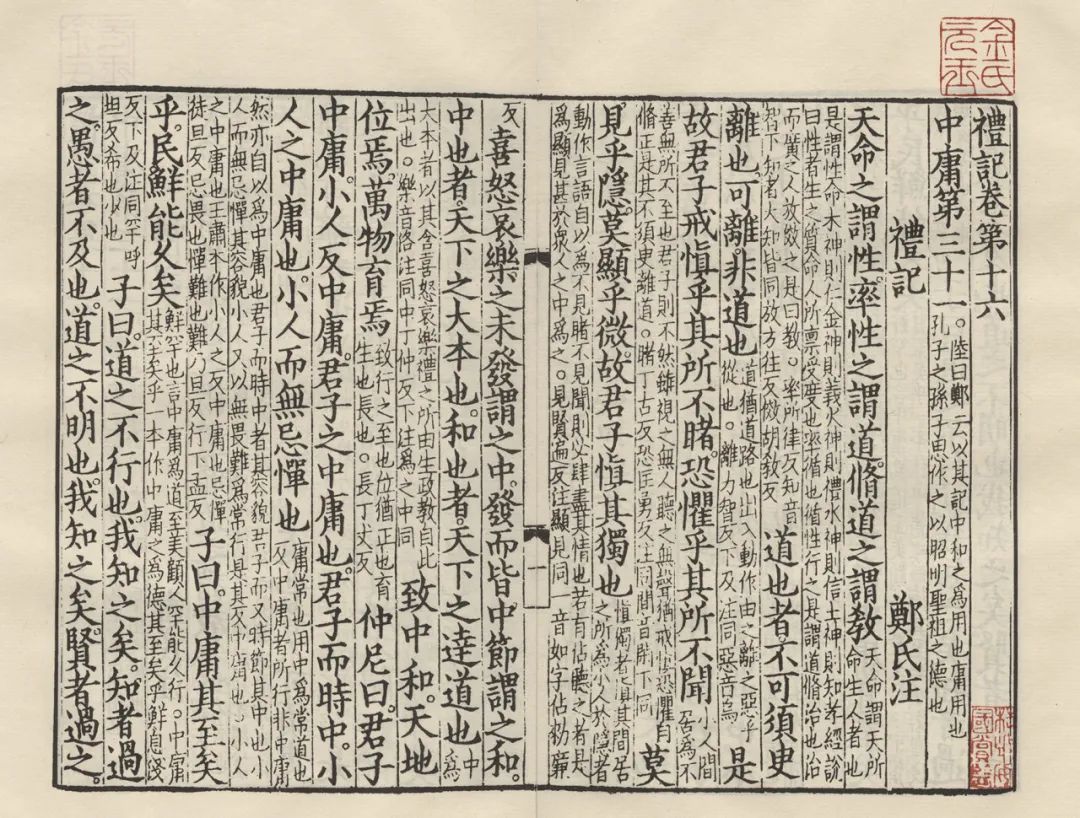 禮記卷第十六
中庸第三十一。陸曰鄭云以其記中和之為用也庸用也
孔子之孫子思作之以昭明聖祖之德也
禮記 鄭氏注
天命之謂性。率性之謂道。脩道之謂教 天命謂天所命生人者也
是謂性命木神則仁金神則義火神則禮水神則信土神則知孝經說
曰性者生之質命人所禀受度也率循也循性行之是謂道脩治也治
而廣之人放傚之是曰教。率所律反知音
智下知者大知皆同放方往反傚胡教反 道也者不可須臾
離也可離非道也 道猶道路也出入動作由之離之惡乎
從也。離力智反下及注同惡音烏 是
故君子戒慎乎其所不睹。恐懼乎其所不聞 小人閒居為不
善無所不至也君子則不然雖視之無人聽之無聲猶戒慎恐懼自
脩正是其不須臾離道。睹丁古反恐匡勇反注同閒音閑下同 莫
見乎隱。莫顯乎微。故君子慎其獨也 慎獨者慎其閒居之所為小人於隱者
動作言語自以為不見睹不見聞則必肆盡其情也若有佔聽之者是
為顯見甚於衆人之中為之。見賢遍反注顯見同一音如字佔勑廉
反 喜怒哀樂之未發謂之中。發而皆中節謂之和。
中也者。天下之大本也。和也者。天下之達道也 中為
大本者以其含喜怒哀樂禮之所由生政教自此
出也。樂音洛注同中丁仲反下注為之中同 致中和。天地
位焉。萬物育焉 致行之至也位猶正也育
生也長也。長丁丈反 仲尼曰。君子
中庸。小人反中庸。君子之中庸也。君子而時中。小
人之中庸也。小人而無忌憚也 庸常也用中為常道也
反中庸者所行非中庸
然亦自以為中庸也君子而時中者其容貌君子而又時節其中也小
人而無忌憚其容貌小人又以無畏難為常行是其反中庸也。小人
之中庸也王肅本作小人之反中庸也忌憚
徒旦反忌畏也憚難也難乃旦反行下孟反 子曰。中庸其至矣
乎。民鮮能久矣 鮮罕也言中庸為道至美顧人罕能久行。中庸
其至矣乎一本作中庸之為德其至矣乎鮮息淺
反下及注同罕呼
坦反希也少也 子曰。道之不行也。我知之矣。知者過
之。愚者不及也。道之不明也。我知之矣。賢者過之。